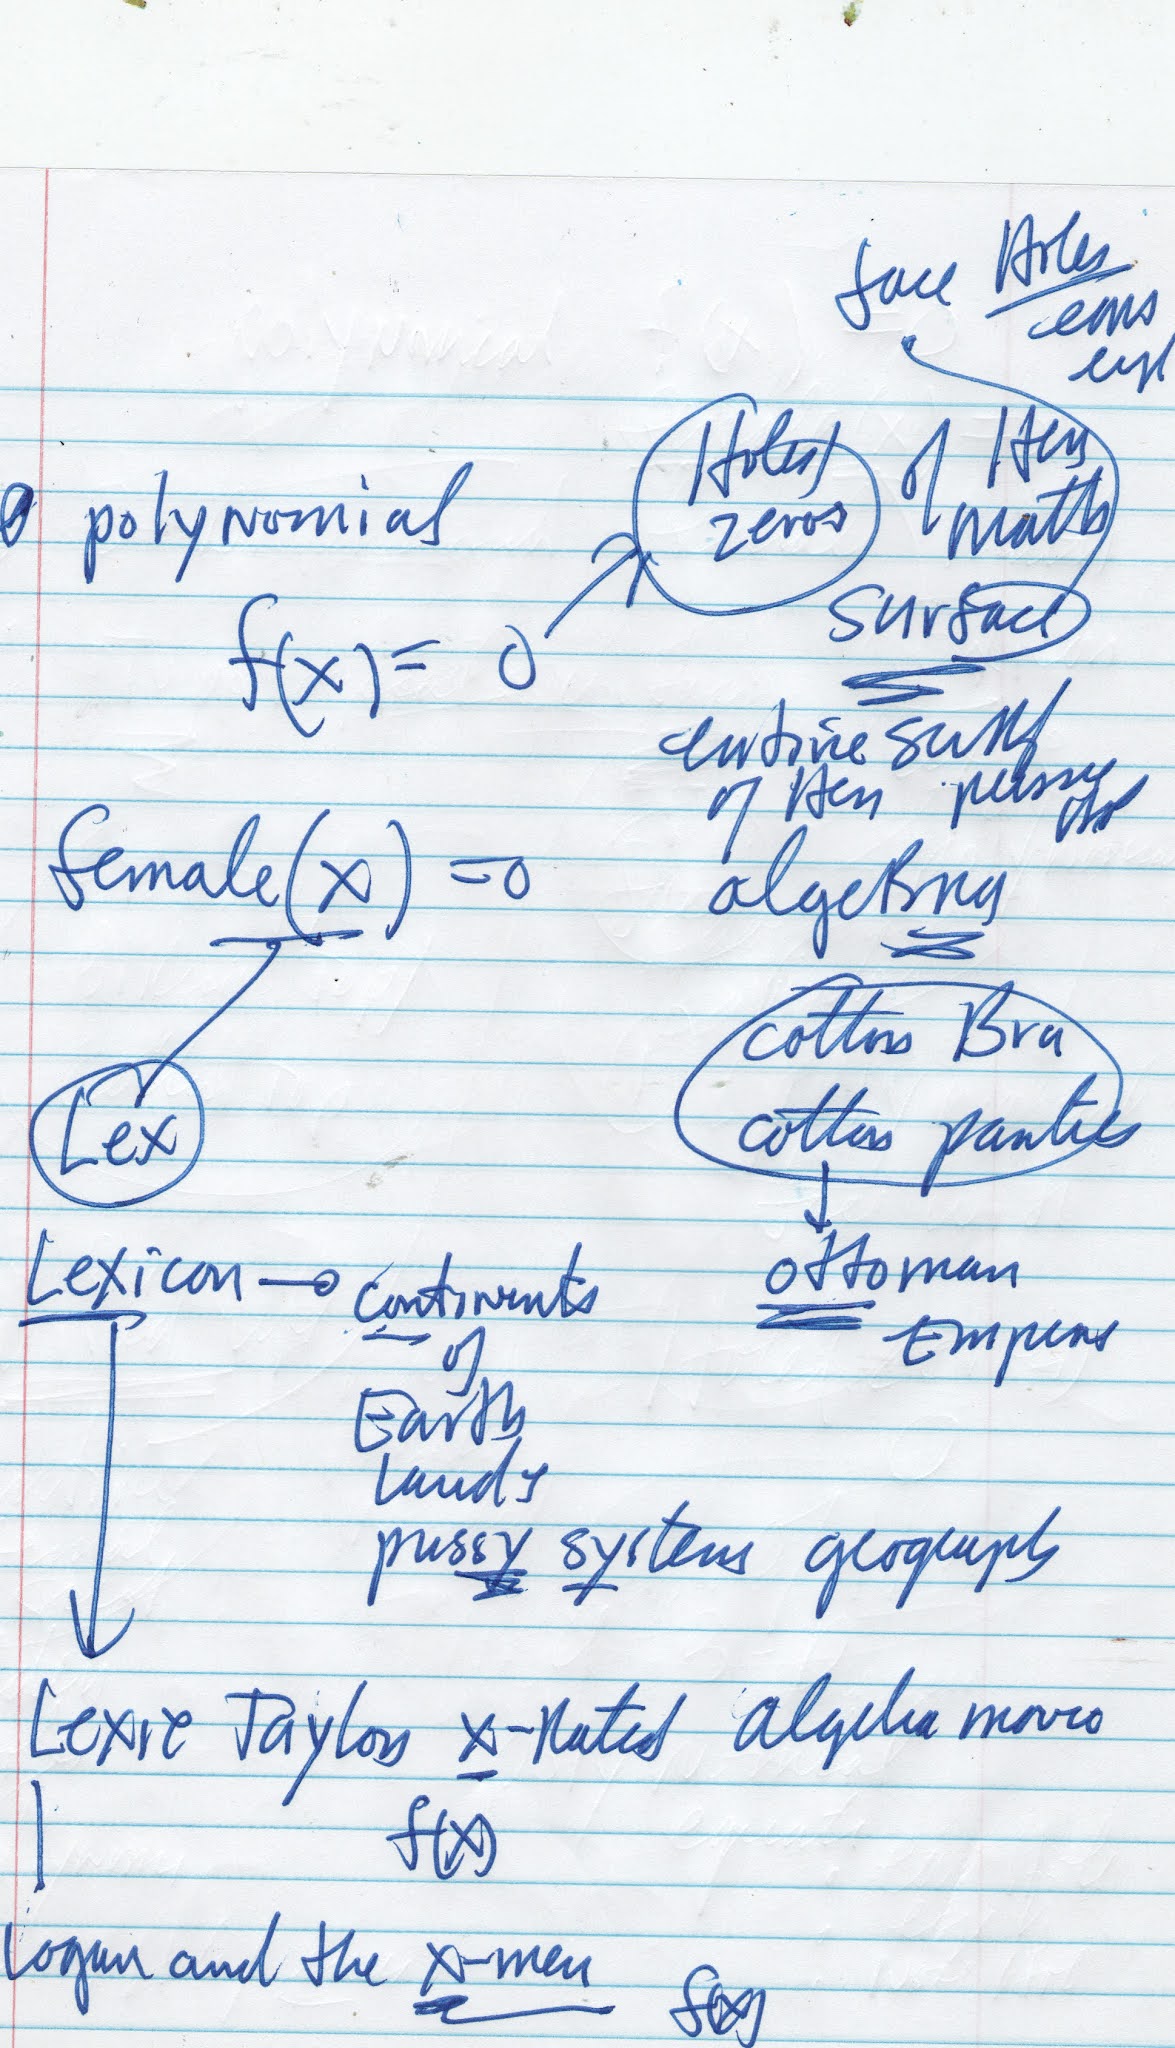 face Holes
ears
Holes/ of Her
zeros math
polynomial
surface
f(x) = 0
entire surf
of Her pussy
female(x) = 0
algeBra
cotton Bra
Lex
cotton panties
Lexicon → continents
ottoman
of
Empire
Earth
Lands
pussy systems geography
Lexie Taylor x-Rated algebra movie
f(x)
Logan and the x-men
f(x)